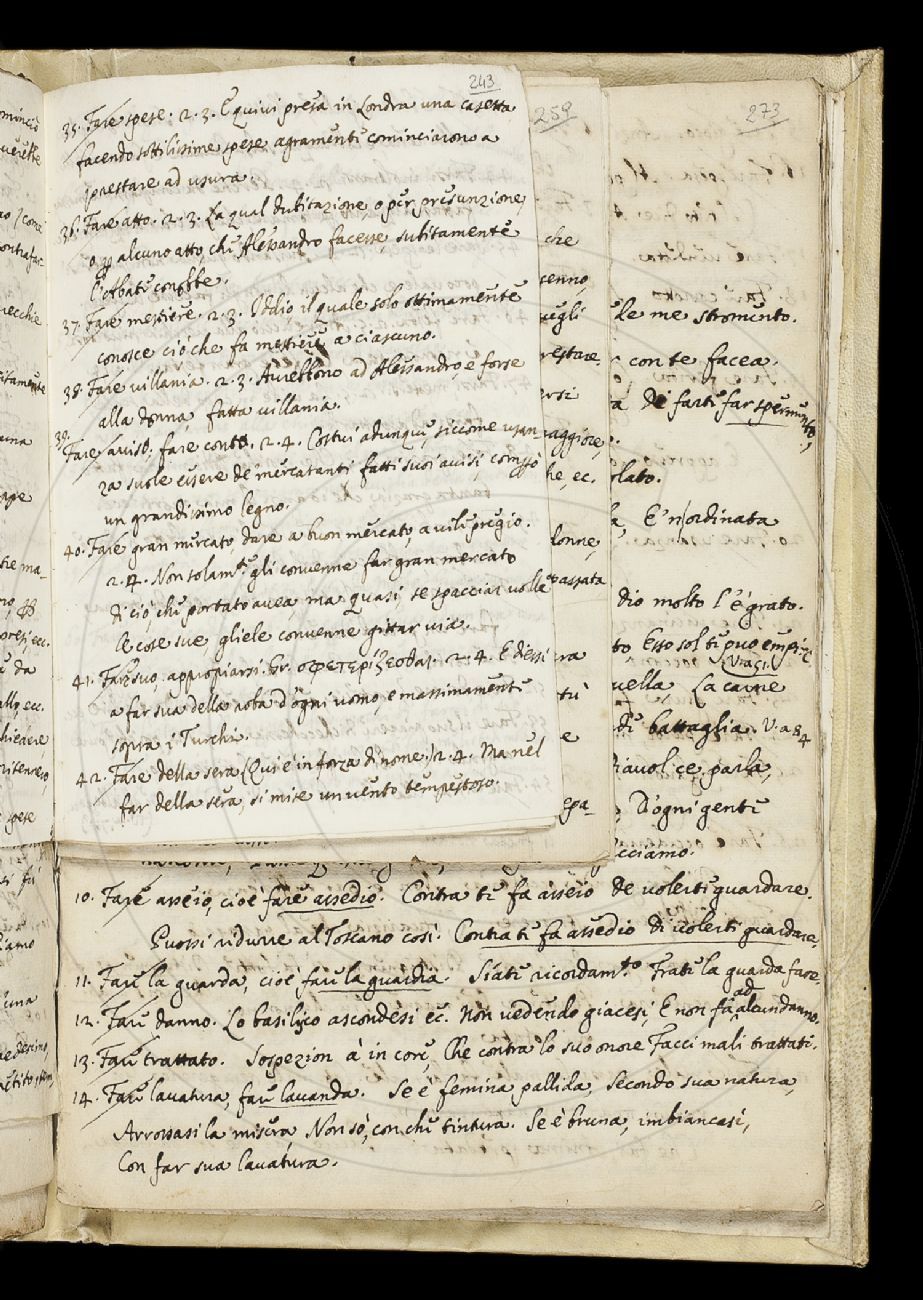 243
35. Fare spese. 2. 3. E quivi presa in Londra una casetta
facendo sottilissime spese agramente cominciarono a
prestare ad usura.
36. Fare atto. 2. 3. La qual dubitazione, o per presunzione,
o per alcuno atto, che Alessandro facesse, subitamente
l'Abate conobbe.
37. Fare mestiere. 2. 3. Iddio, il quale solo ottimamente
conosce ciò che fa mestiere a ciascuno.
38. Fare villania. 2. 3. Avrebbono ad Alessandro, e forse
alla donna, fatta villania.
39. Fare avviso: fare conto. 2. 4. Costui adunque, siccome usan-
za suole essere de' mercatanti fatti suoi avvisi, comprò
un grandissimo legno.
40. Fare gran mercato, dare a buon mercato, a vile pregio.
2. 4. Non solam.te gli convenne far gran mercato
di ciò, che portato avea, ma quasi, se spacciar volle
le cose sue, gliele convenne gittar via.
41. Fare suo, appropiarsi. Gr. σφετερίζεσθαι. 2. 4. E diessi
a far sua della roba d'ogni uomo, e massimamente
sopra i Turchi.
42. Fare della sera (Qui è in forza di nome.) 2. 4. Ma nel
far della sera, si mise un vento tempestoso
259
che
senno,
restare
ersi
he, ec.
donne,
passata
era
e
epa-
273
le me stromento.
con te facea.
di farti far spermento,
olato.
E n'ordinata
dio molto l'è grato.
to Esso sol ti può empi
vella, La carne
di battaglia. V. a 84
Diavol ce parla,
D'ogni gente
cciamo.
10. Fare asseio, cioè fare assedio. Contra te fa asseio De volerti guardare.
Puossi ridurre al Toscano così. Contra te fa assedio di volerti guardare.
11. Fare la guarda, cioè fare la guardia. Siate ricordam.to Frate la guarda fare.
12. Fare danno. Lo basilisco ascondesi ec. Non vedendo giacesi, E non fa ad alcun danno.
13. Fare trattato. Sospezion à in core, Che contra lo suo onore Facci mali trattati.
14. Fare lavatura, fare lavanda. Se è femina pallida, Secondo sua natura,
Arrossasi la misera, Non sò, con che tintura. Se è bruna, imbiancasi,
Con far sua lavatura.